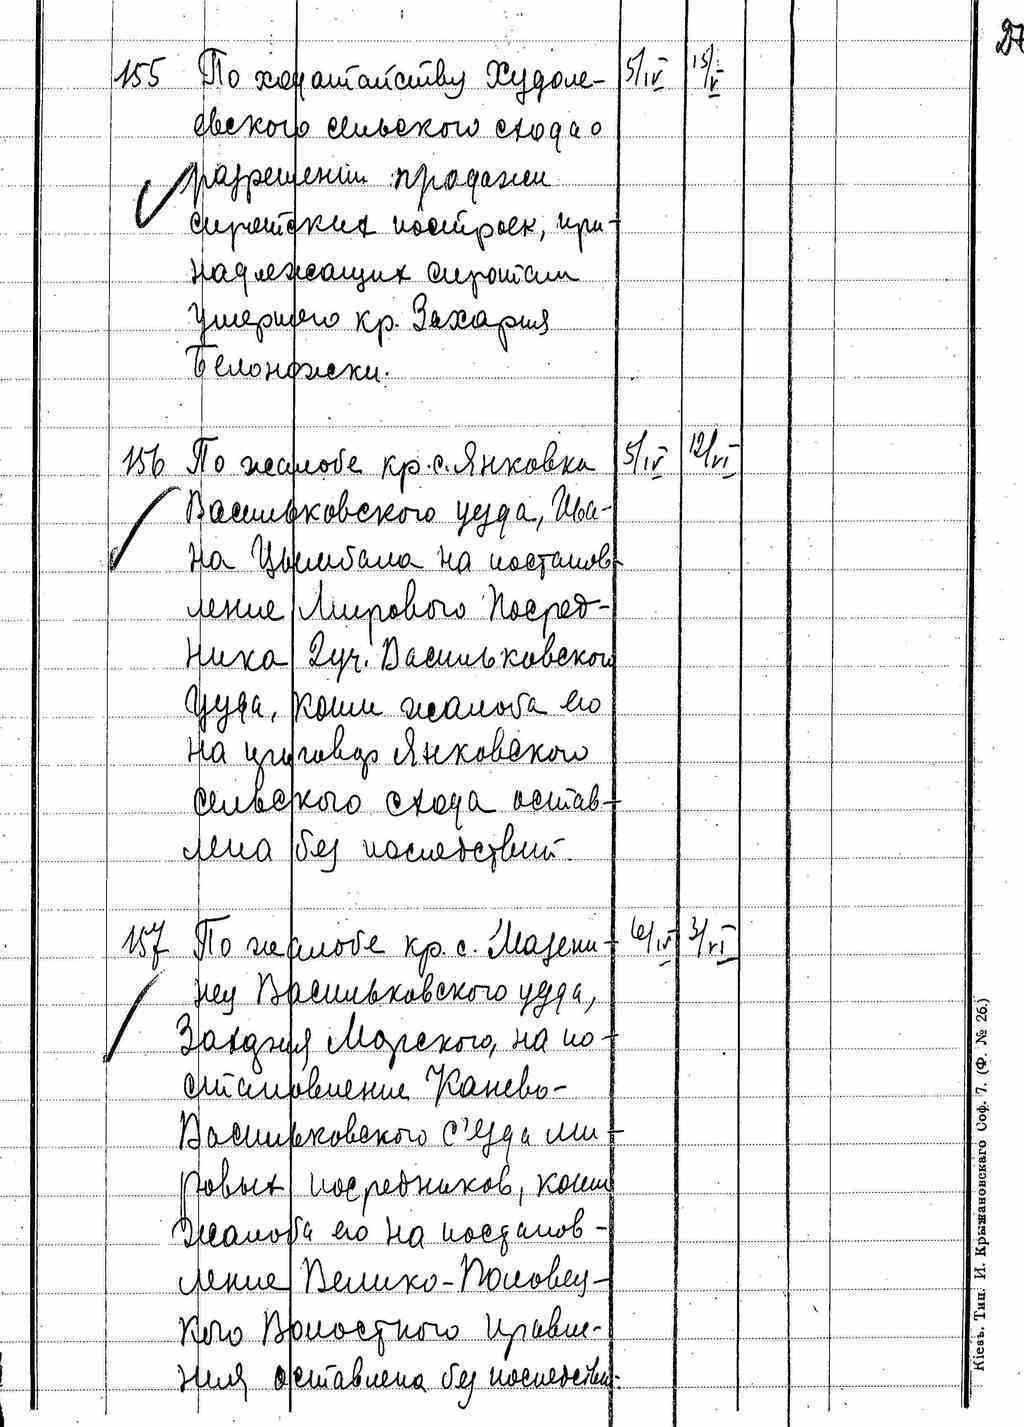 27
155 По ходатайству Худоле- 5/IV 15/V
евского сельского схода о
разрешении продажи
сиротских построек, при-
надлежащих сиротам
умершего кр. Захария
Белоножски.
156 По жалобе кр. с. Янковка 5/IV 12/VI
Васильковского уезда, Ива-
на Цымбала на постанов-
ление Мирового Посред-
ника 2 уч. Васильковского
уезда, коим жалоба его
на приговор Янковского
сельского схода остав-
лена без последствий.
157 По жалобе кр. с. Мазепи- 6/IV 3/VI
нец Васильковского уезда,
Захария Морского, на по-
становление Канево-
Васильковского с'езда ми-
ровых посредников, коим
жалоба его на постанов-
ление Велико-Половец-
кого Волостного Правле-
ния оставлена без последствий.
Кіевъ. Тип. И. Крыжановскаго Соф. 7. (Ф. № 26.)